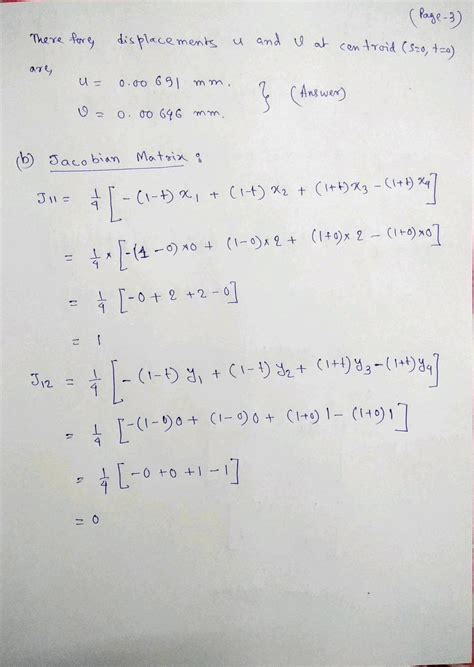 (Page-3)
There fore, displacements u and v at centroid (s=0, t=0)
are,
u = 0.00691 mm.
v = 0.00696 mm. } (Answer)
(b) Jacobian Matrix :
J11 = 1/4 [-(1-t) x1 + (1-t) x2 + (1+t) x3 - (1+t) x4]
= 1/4 × [-(1-0)×0 + (1-0)×2 + (1+0)×2 - (1+0)×0]
= 1/4 [-0+2+2-0]
= 1
J12 = 1/4 [-(1-t) y1 + (1-t) y2 + (1+t) y3 - (1+t) y4]
= 1/4 [-(1-0)0 + (1-0)0 + (1+0)1 - (1+0)1]
= 1/4 [-0+0+1-1]
= 0